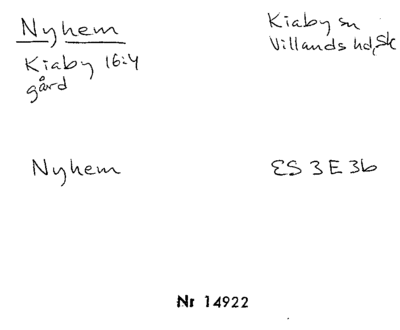 Nyhem
Kiaby 16:4
gård
Kiaby sn
Villands hd, Sk
Nyhem
ES 3 E 3b
Nr 14922